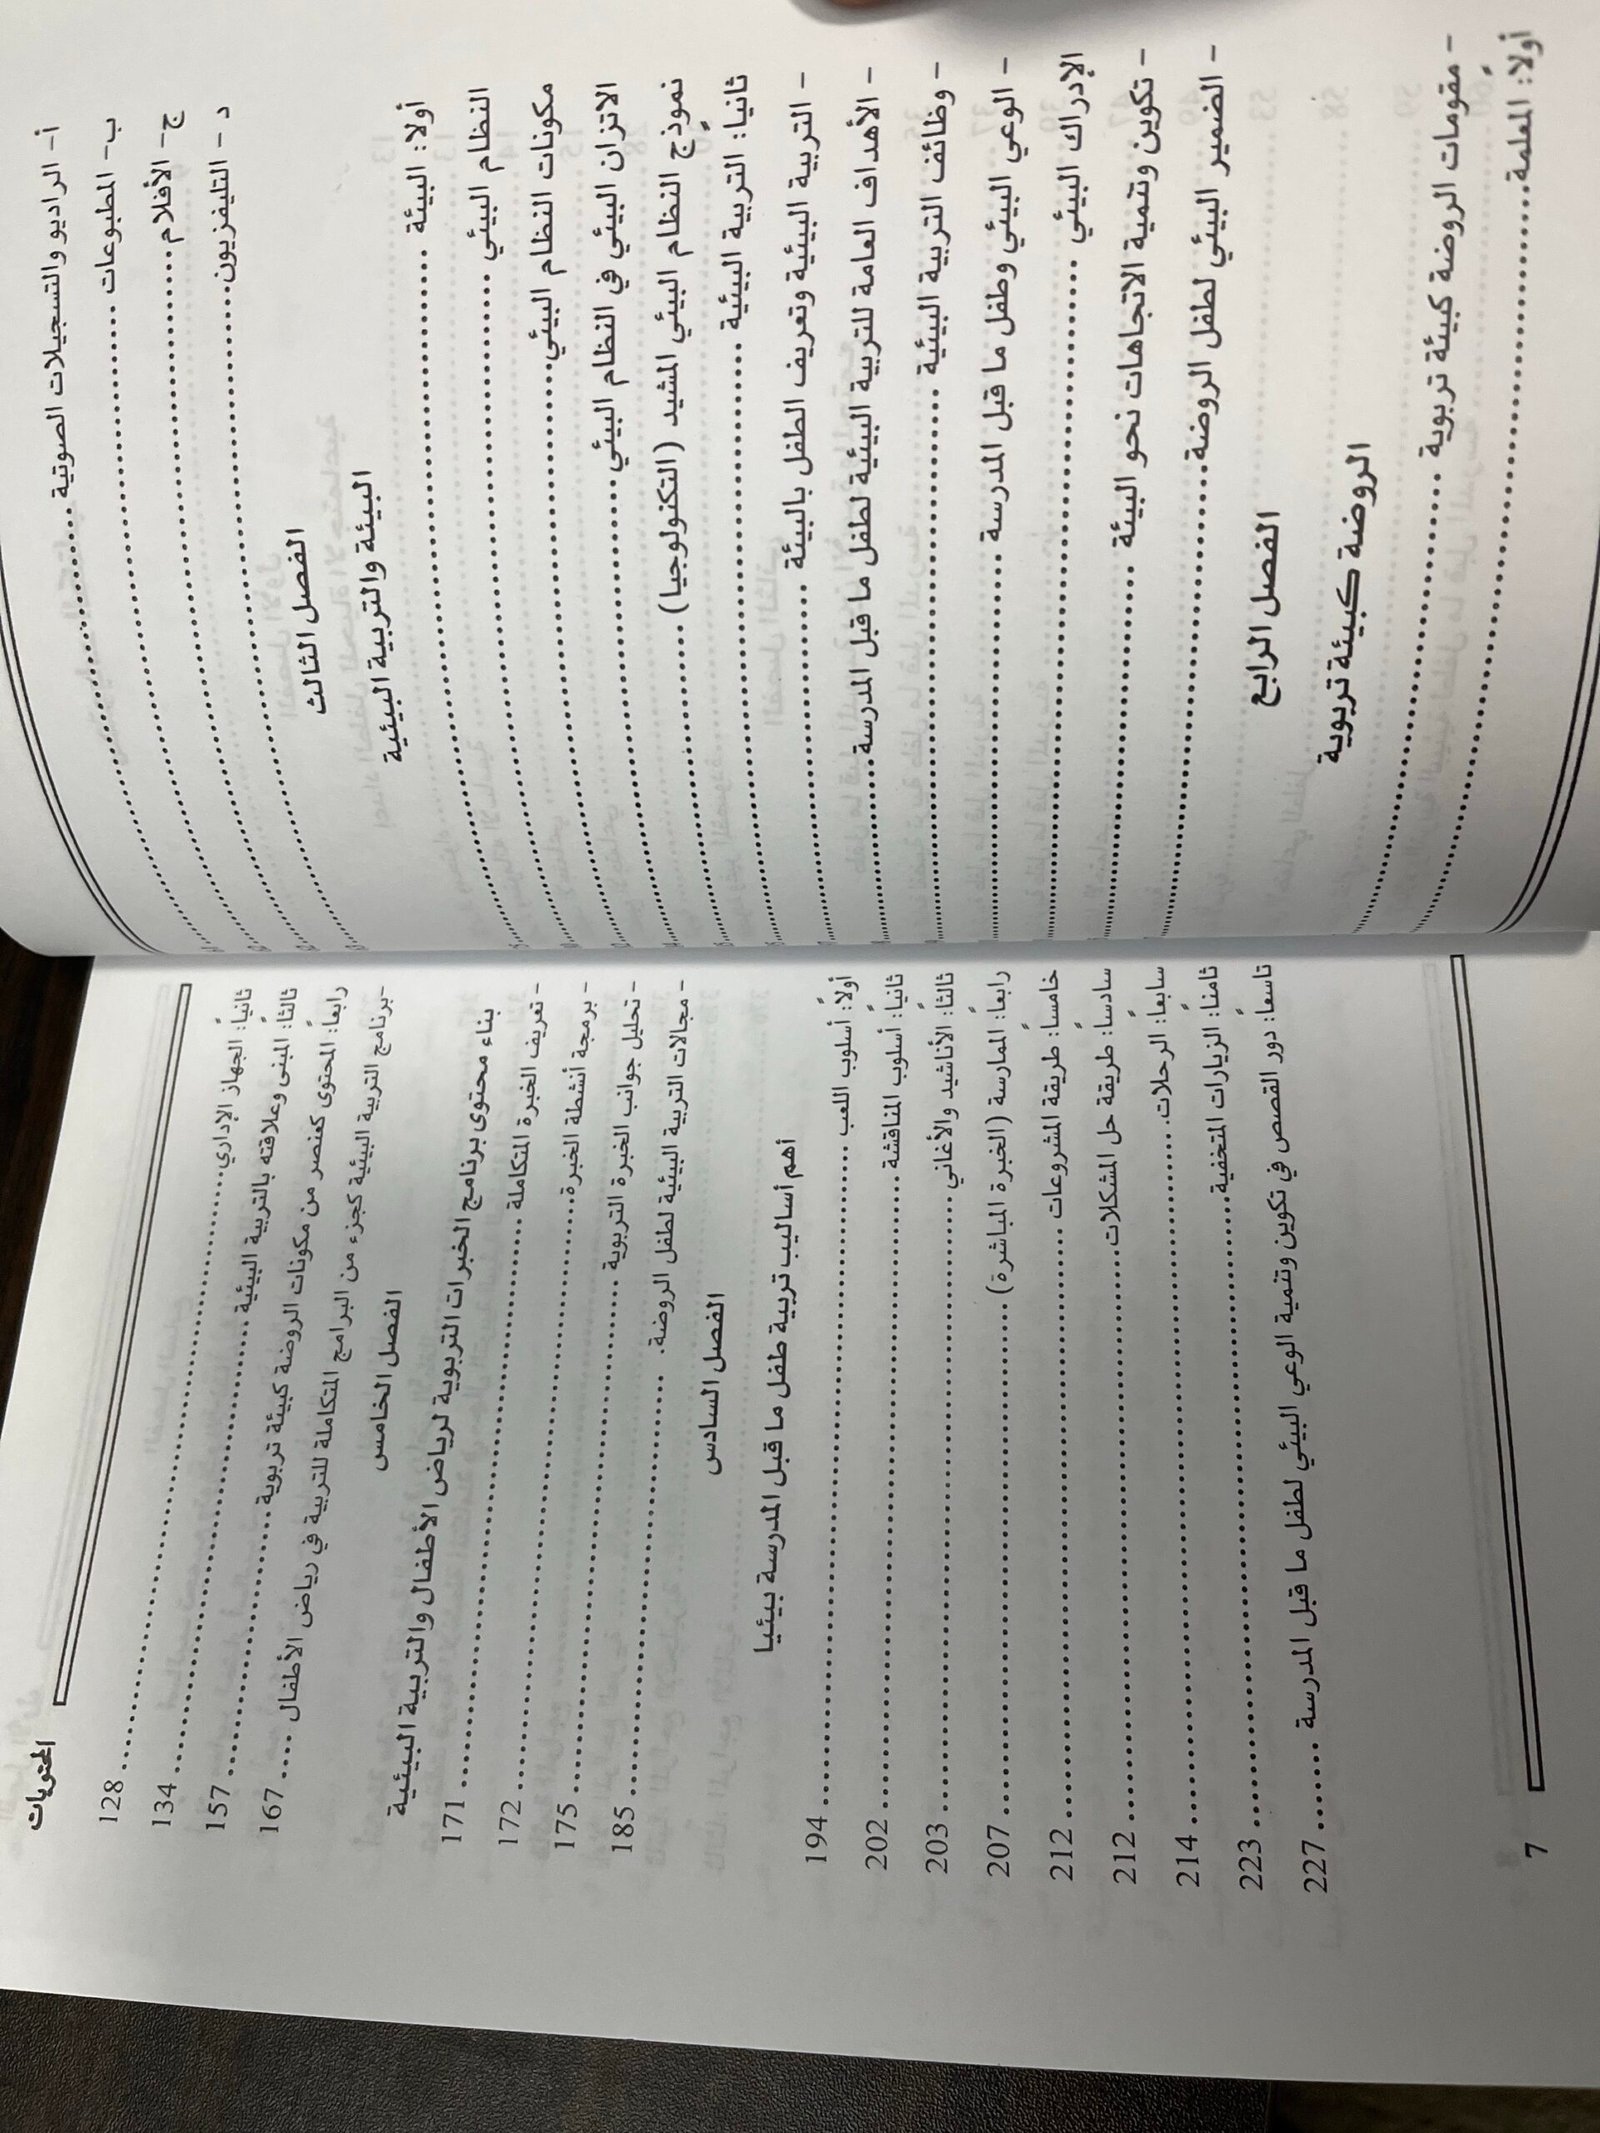 أ- الراديو والتسجيلات الصوتية ........
ب- المطبوعات ........
ج- الأفلام ........
د - التليفزيون ........
الفصل الثالث
البيئة والتربية البيئية
أولاً: البيئة ........
النظام البيئي ........
مكونات النظام البيئي ........
الاتزان البيئي في النظام البيئي ........
نموذج النظام البيئي المشيد (التكنولوجيا) ........
ثانياً: التربية البيئية ........
- التربية البيئية وتعريف الطفل بالبيئة ........
- الأهداف العامة للتربية البيئية لطفل ما قبل المدرسة ........
- وظائف التربية البيئية ........
- الوعي البيئي وطفل ما قبل المدرسة ........
الإدراك البيئي ........
- تكوين وتنمية الاتجاهات نحو البيئة ........
- الضمير البيئي لطفل الروضة ........
الفصل الرابع
الروضة كبيئة تربوية
- مقومات الروضة كبيئة تربوية ........
أولاً: المعلمة ........
المحتويات
ثانياً: الجهاز الإداري ........ 128
ثالثاً: المبنى وعلاقته بالتربية البيئية ........ 134
رابعاً: المحتوى كعنصر من مكونات الروضة كبيئة تربوية ........ 157
-برنامج التربية البيئية كجزء من البرامج المتكاملة للتربية في رياض الأطفال .... 167
الفصل الخامس
بناء محتوى برنامج الخبرات التربوية لرياض الأطفال والتربية البيئية
- تعريف الخبرة المتكاملة ........ 171
- برمجة أنشطة الخبرة ........ 172
- تحليل جوانب الخبرة التربوية ........ 175
- مجالات التربية البيئية لطفل الروضة. ........ 185
الفصل السادس
أهم أساليب تربية طفل ما قبل المدرسة بيئيا
أولاً: أسلوب اللعب ........ 194
ثانياً: أسلوب المناقشة ........ 202
ثالثاً: الأناشيد والأغاني ........ 203
رابعاً: الممارسة (الخبرة المباشرة) ........ 207
خامساً: طريقة المشروعات ........ 212
سادساً: طريقة حل المشكلات ........ 212
سابعاً: الرحلات ........ 214
ثامناً: الزيارات المتخفية ........ 223
تاسعاً: دور القصص في تكوين وتنمية الوعي البيئي لطفل ما قبل المدرسة ........ 227
7